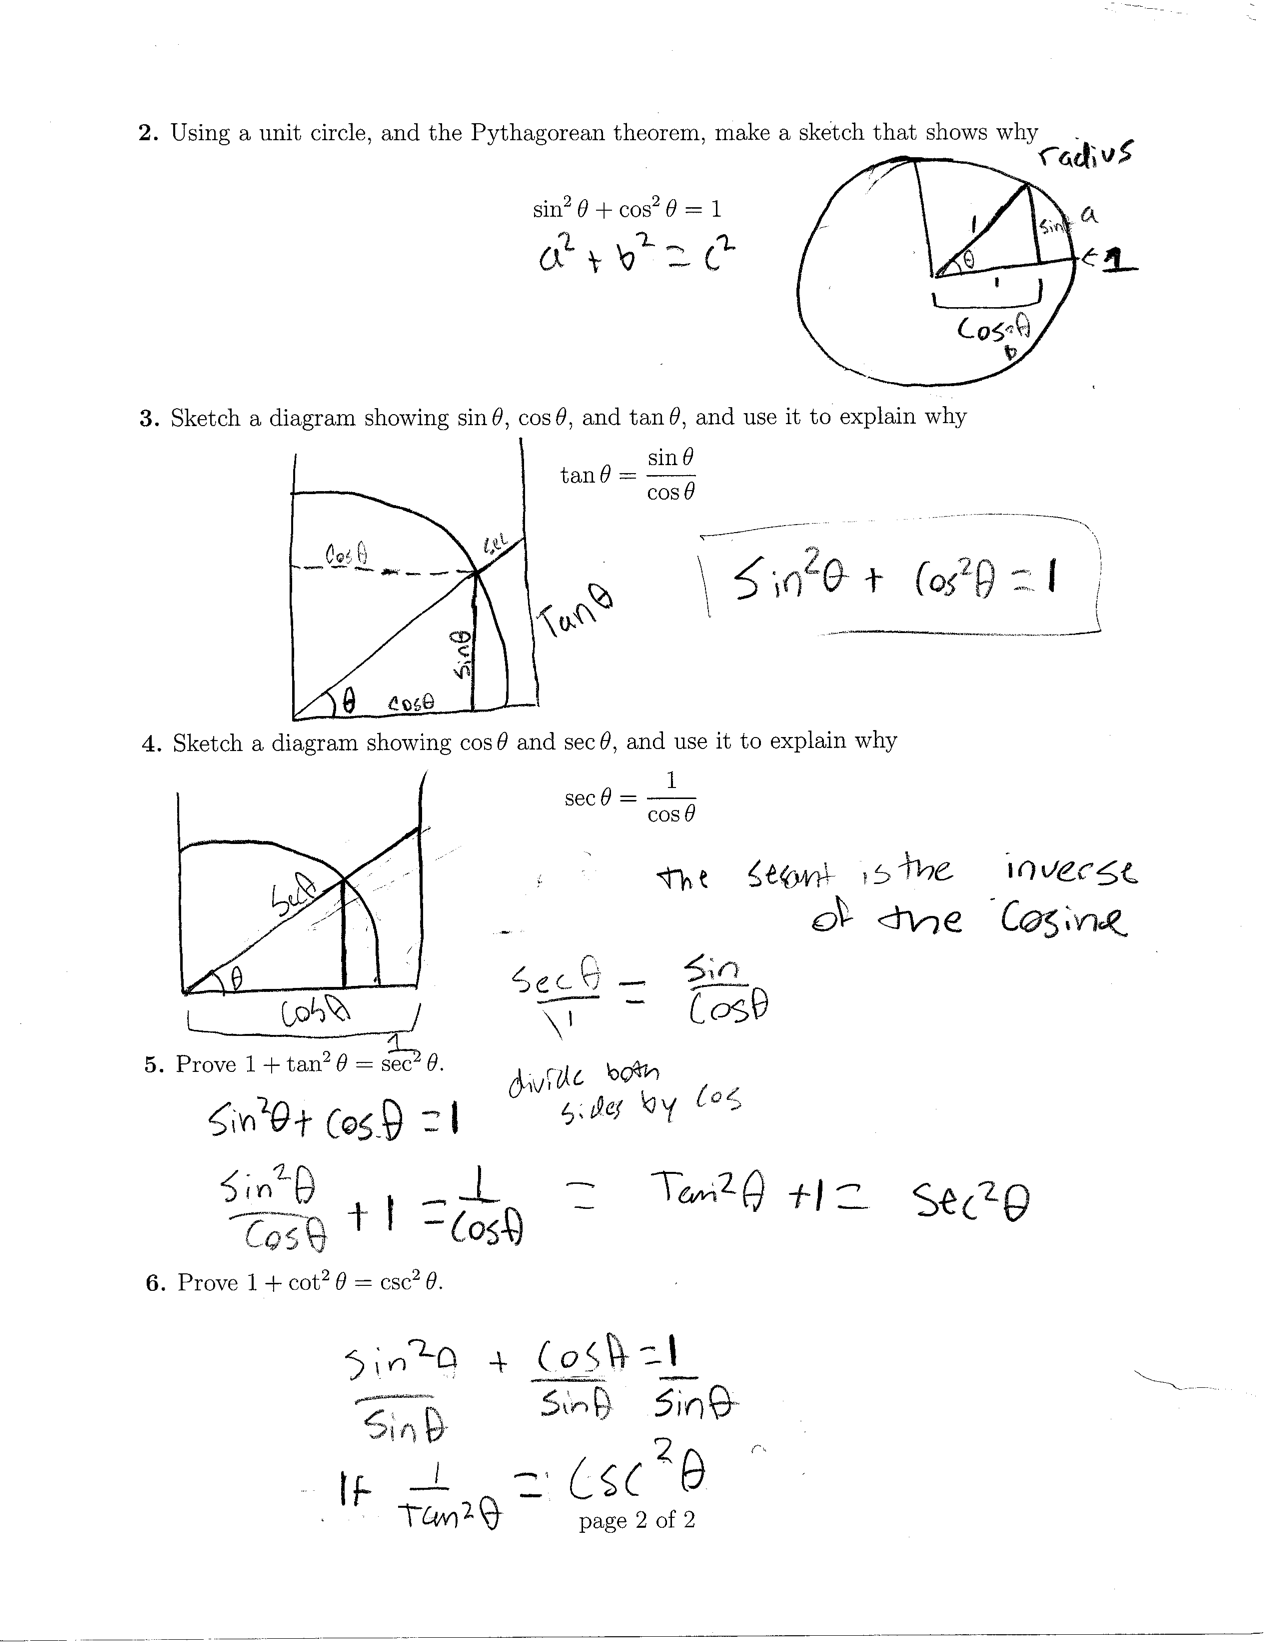 2. Using a unit circle, and the Pythagorean theorem, make a sketch that shows why
radius
sin² θ + cos² θ = 1
a² + b² = c²
1
sinθ
a
θ
← 1
1
Cosθ
b
3. Sketch a diagram showing sin θ, cos θ, and tan θ, and use it to explain why
tan θ = sin θ / cos θ
Cosθ
sec
Sin²θ + Cos²θ = 1
Tanθ
Sinθ
θ
Cosθ
4. Sketch a diagram showing cos θ and sec θ, and use it to explain why
sec θ = 1 / cos θ
the secant is the inverse
of the Cosine
Secθ
θ
Secθ / 1 = Sin / Cosθ
Cosθ
1
5. Prove 1 + tan² θ = sec² θ.
divide both
sides by Cos
Sin²θ + Cosθ = 1
Sin²θ / Cosθ + 1 = 1 / Cosθ = Tan²θ + 1 = Sec²θ
6. Prove 1 + cot² θ = csc² θ.
Sin²θ / Sinθ + Cosθ / Sinθ = 1 / Sinθ
If 1 / Tan²θ = Csc²θ
page 2 of 2